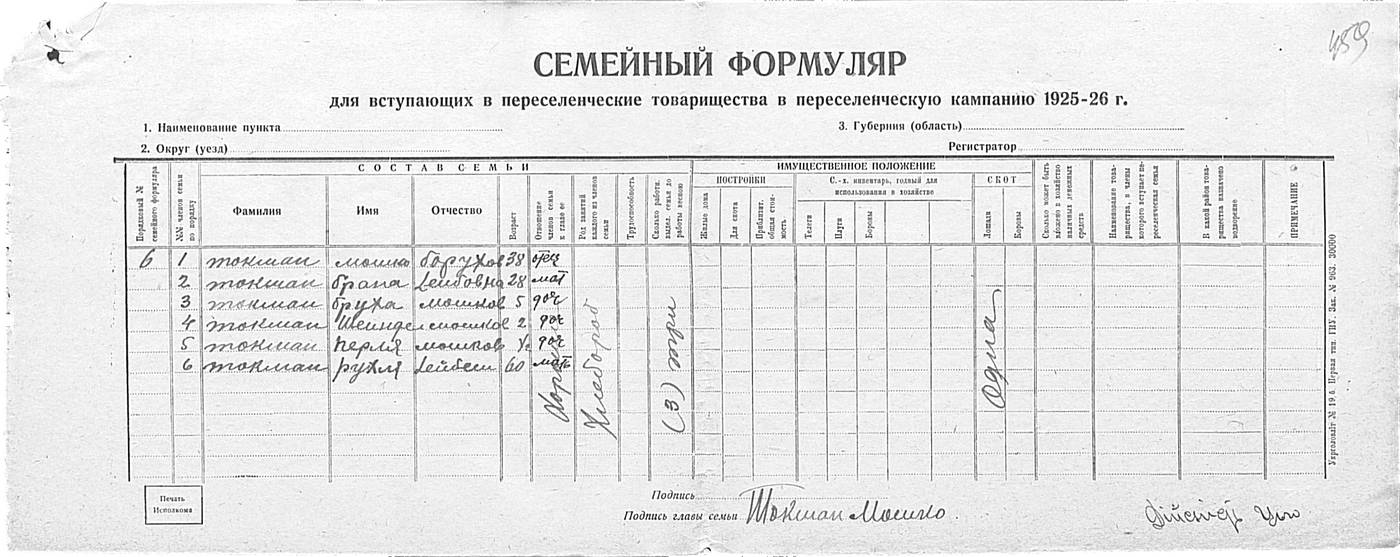 459
СЕМЕЙНЫЙ ФОРМУЛЯР
для вступающих в переселенческие товарищества в переселенческую кампанию 1925-26 г.
1. Наименование пункта
3. Губерния (область)
2. Округ (уезд)
Регистратор
СОСТАВ СЕМЬИ
ИМУЩЕСТВЕННОЕ ПОЛОЖЕНИЕ
ПОСТРОЙКИ
С.-х. инвентарь, годный для использования в хозяйстве
СКОТ
Порядковый № семейного формуляра
№№ членов семьи по порядку
Фамилия
Имя
Отчество
Возраст
Отношение членов семьи к главе ее
Род занятий каждого из членов семьи
Трудоспособность
Сколько работн. выдел. семья до работы весною
Жилые дома
Для скота
Приблизит. общая стоимость
Телеги
Плуги
Бороны
Лошади
Коровы
Сколько может быть вложено в хозяйство наличных денежных средств
Наименование товарищества, в члены которого вступает переселенческая семья
В какой район товарищества назначено водворение
ПРИМЕЧАНИЕ
6 1 Токман Мошко Борухов 38 отец
2 Токман Брана Лейбовна 28 мат
3 Токман Бруха Мошков 5 доч
4 Токман Шейндел Мошков 2 доч
5 Токман Перля Мошков ½ доч
6 Токман Рухля Лейбеш 60 мать
Хлебороб
(3) три
Одна
Укрголовліт № 19.6. Первая тип. ГИУ. Зак. № 963. 30000
Печать Исполкома
Подпись
Подпись главы семьи Токман Мошко.